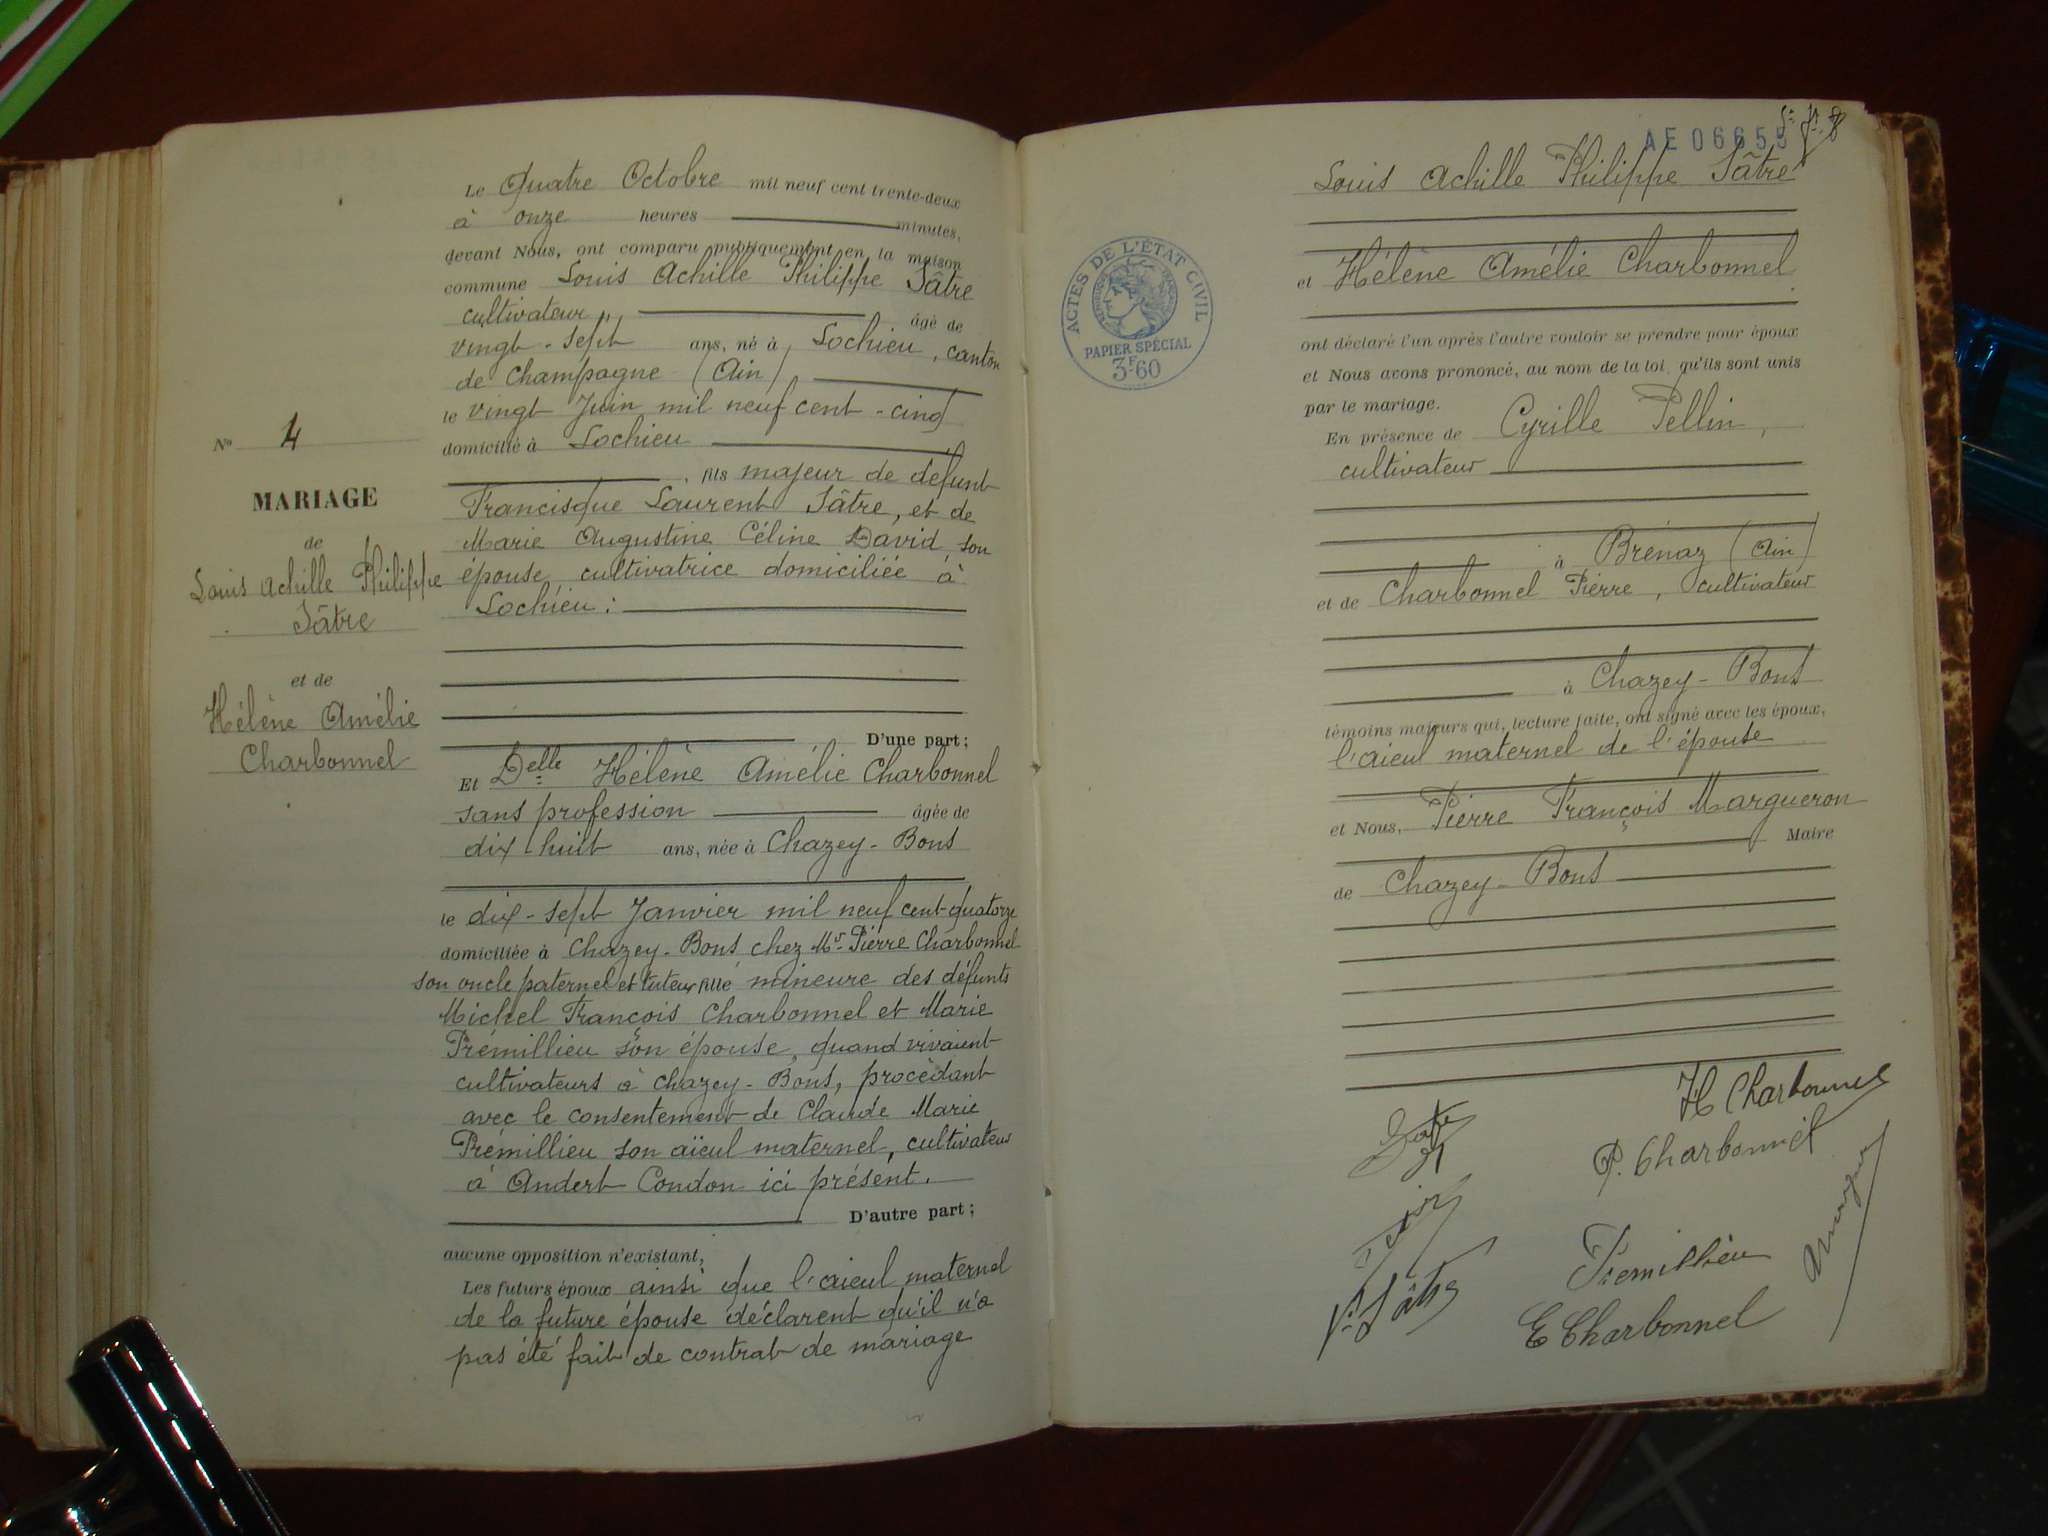 Le Quatre Octobre mil neuf cent trente-deux
à onze heures minutes,
devant Nous, ont comparu publiquement en la maison
commune Louis Achille Philippe Jâtre
cultivateur âgé de
vingt-sept ans, né à Lochieu, canton
de Champagne (Ain)
le vingt Juin mil neuf cent-cinq
domicilié à Lochieu
fils majeur de défunt
Francisque Laurent Jâtre, et de
Marie Augustine Céline David son
épouse, cultivatrice domiciliée à
Lochieu:
D'une part;
No 4
MARIAGE
de
Louis Achille Philippe
Jâtre
et de
Hélène Amélie
Charbonnel
Et Delle Hélène Amélie Charbonnel
sans profession âgée de
dix huit ans, née à Chazey-Bons
le dix-sept Janvier mil neuf cent-quatorze
domiciliée à Chazey-Bons chez Mr Pierre Charbonnel
son oncle paternel et tuteur fille mineure des défunts
Michel François Charbonnel et Marie
Prémillieu son épouse, quand vivaient
cultivateurs à Chazey-Bons, procédant
avec le consentement de Claude Marie
Prémillieu son aïeul maternel, cultivateur
à Andert Condon ici présent.
D'autre part;
aucune opposition n'existant,
Les futurs époux ainsi que l'aieul maternel
de la future épouse déclarent qu'il n'a
pas été fait de contrat de mariage
AE 06655
Louis Achille Philippe Jâtre
et Hélène Amélie Charbonnel
ACTES DE L'ÉTAT CIVIL
PAPIER SPÉCIAL
3F60
ont déclaré l'un après l'autre vouloir se prendre pour époux
et Nous avons prononcé, au nom de la loi, qu'ils sont unis
par le mariage.
En présence de Cyrille Pellin,
cultivateur
à Brénaz (Ain)
et de Charbonnel Pierre, cultivateur
à Chazey-Bons
témoins majeurs qui, lecture faite, ont signé avec les époux,
l'aieul maternel de l'épouse
et Nous, Pierre François Margueron
Maire
de Chazey-Bons
H Charbonnel
P. Charbonnel
Premillieu
E Charbonnel